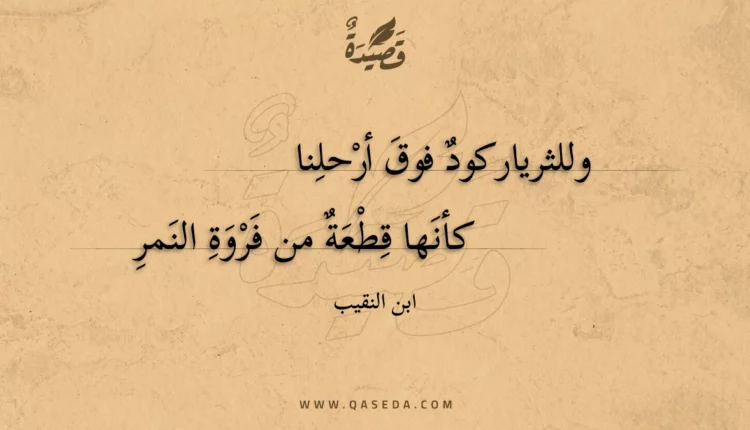 قَصِيْدَةٌ
وللثريا ركودٌ فوقَ أرْحلِنا
كأنَها قِطْعَةٌ من فَرْوَةِ النَمرِ
ابن النقيب
WWW.QASEDA.COM